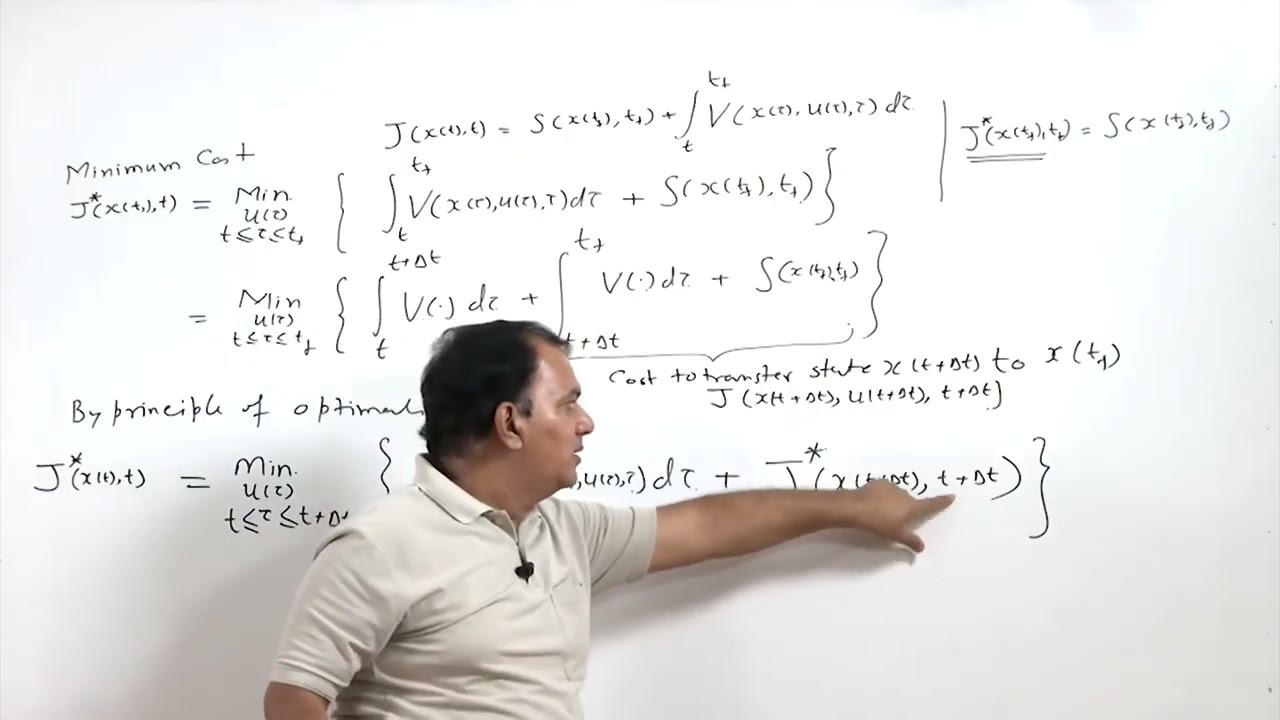 J(x(t),t) = S(x(t_f),t_f) + ∫_t^{t_f} V(x(τ), u(τ), τ) dτ
J*(x(t_f),t_f) = S(x(t_f),t_f)
Minimum Cost
J*(x(t),t) = Min. u(τ) t≤τ≤t_f { ∫_t^{t_f} V(x(τ),u(τ),τ)dτ + S(x(t_f),t_f) }
= Min u(τ) t≤τ≤t_f { ∫_t^{t+Δt} V(·) dτ + ∫_{t+Δt}^{t_f} V(·)dτ + S(x(t_f),t_f) }
Cost to transfer state x(t+Δt) to x(t_f)
J(x(t+Δt), u(t+Δt), t+Δt)
By principle of
J*(x(t),t) = Min. u(τ) t≤τ≤t+Δt { ,u(τ),τ)dτ + J*(x(t+Δt), t+Δt) }